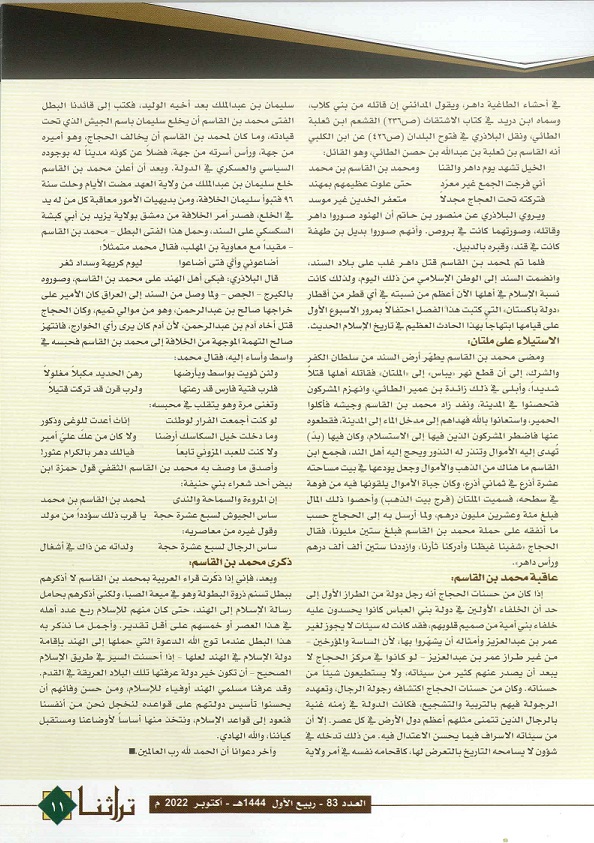 في أحشاء الطاغية داهر، ويقول المدائني إن قاتله من بني كلاب،
وسماه ابن دريد في كتاب الاشتقاق (ص٢٣٦) القشعم ابن ثعلبة
الطائي، ونقل البلاذري في فتوح البلدان (ص٤٢٦) عن ابن الكلبي
أنه القاسم بن ثعلبة بن عبدالله بن حصن الطائي، وهو القائل:
الخيل تشهد يوم داهر والقنا ومحمد بن القاسم بن محمد
أني فرجت الجمع غير معرّد حتى علوت عظيمهم بمهند
فتركته تحت العجاج مجدلا متعفر الخدين غير موسد
ويروي البلاذري عن منصور بن حاتم أن الهنود صوروا داهر
وقاتله، وصورتهما كانت في بروص. وأنهم صوروا بديل بن طهفة
كانت في قند، وقبره بالدبيل.
فلما تم لمحمد بن القاسم قتل داهر غلب على بلاد السند،
وانضمت السند إلى الوطن الإسلامي من ذلك اليوم، ولذلك كانت
نسبة الإسلام في أهلها الآن أعظم من نسبته في أي قطر من أقطار
«دولة باكستان» التي كتبت هذا الفصل احتفالا بمرور الأسبوع الأول
على قيامها ابتهاجا بهذا الحادث العظيم في تاريخ الإسلام الحديث.
الاستيلاء على ملتان:
ومضى محمد بن القاسم يطهّر أرض السند من سلطان الكفر
والشرك، إلى أن قطع نهر «بياس» إلى «الملتان» فقاتله أهلها قتالاً
شديداً، وأبلى في ذلك زائدة بن عمير الطائي، وانهزم المشركون
فتحصنوا في المدينة، ونفد زاد محمد بن القاسم وجيشه فأكلوا
الحمير، واستعانوا بالله فهداهم إلى مدخل الماء إلى المدينة، فقطعوه
عنها فاضطر المشركون الذين فيها إلى الاستسلام، وكان فيها (بد)
تُهدى إليه الأموال وتنذر له النذور ويحج إليه أهل الند، فجمع ابن
القاسم ما هناك من الذهب والأموال وجعل يودعها في بيت مساحته
عشرة أذرع في ثماني أذرع، وكان جباة الأموال يلقونها فيه من فوهة
في سطحه، فسميت الملتان (فرج بيت الذهب) وأحصوا ذلك المال
فبلغ مئة وعشرين مليون درهم، ولما أرسل به إلى الحجاج حسب
ما أنفقه على حملة محمد بن القاسم فبلغ ستين مليوناً، فقال
الحجاج «شفينا غيظنا وأدركنا ثأرنا، وازددنا ستين ألف ألف درهم
ورأس داهر».
عاقبة محمد بن القاسم:
إذا كان من حسنات الحجاج أنه رجل دولة من الطراز الأول إلى
حد أن الخلفاء الأولين في دولة بني العباس كانوا يحسدون عليه
خلفاء بني أمية من صميم قلوبهم، فقد كانت له سيئات لا يجوز لغير
عمر بن عبدالعزيز وأمثاله أن يشهّروا بها، لأن الساسة والمؤرخين -
من غير طراز عمر بن عبدالعزيز - لو كانوا في مركز الحجاج لا
يبعد أن يصدر عنهم كثير من سيئاته، ولا يستطيعون شيئاً من
حسناته. وكان من حسنات الحجاج اكتشافه رجولة الرجال، وتعهده
الرجولة فيهم بالتربية والتشجيع، فكانت الدولة في زمنه غنية
بالرجال الذين تتمنى مثلهم أعظم دول الأرض في كل عصر. إلا أن
من سيئاته الاسراف فيما يحسن الاعتدال فيه، من ذلك تدخله في
شؤون لا يسامحه التاريخ بالتعرض لها، كاقحامه نفسه في أمر ولاية
سليمان بن عبدالملك بعد أخيه الوليد، فكتب إلى قائدنا البطل
الفتى محمد بن القاسم أن يخلع سليمان باسم الجيش الذي تحت
قيادته، وما كان لمحمد بن القاسم أن يخالف الحجاج، وهو أميره
من جهة، ورأس أسرته من جهة، فضلاً عن كونه مديناً له بوجوده
السياسي والعسكري في الدولة. وبعد أن أعلن محمد بن القاسم
خلع سليمان بن عبدالملك من ولاية العهد مضت الأيام وحلت سنة
٩٦ فتبوأ سليمان الخلافة، ومن بديهيات الأمور معاقبة كل من له يد
في الخلع، فصدر أمر الخلافة من دمشق بولاية يزيد بن أبي كبشة
السكسكي على السند، وحمل هذا الفتى البطل - محمد بن القاسم
- مقيداً مع معاوية بن المهلب، فقال محمد متمثلاً:
أضاعوني وأي فتى أضاعوا ليوم كريهة وسداد ثغر
قال البلاذري: فبكى أهل الهند على محمد بن القاسم، وصوروه
بالكيرج - الجص - ولما وصل من السند إلى العراق كان الأمير على
خراجها صالح بن عبدالرحمن، وهو من موالي تميم، وكان الحجاج
قتل أخاه آدم بن عبدالرحمن، لأن آدم كان يرى رأي الخوارج، فانتهز
صالح التهمة الموجهة من الخلافة إلى محمد بن القاسم فحبسه في
واسط وأساء إليه، فقال محمد:
ولئن ثويت بواسط وبأرضها رهن الحديد مكبلاً مغلولاً
فلرب فتية فارس قد رعتها ولرب قرن قد تركت قتيلاً
وتغنى مرة وهو يتقلب في محبسه:
لو كنت أجمعت الفرار لوطئت إناث أعدت للوغى وذكور
وما دخلت خيل السكاسك أرضنا ولا كان من عك عليّ أمير
ولا كنت للعبد المزوني تابعاً فيالك دهر بالكرام عثور!
وأصدق ما وصف به محمد بن القاسم الثقفي قول حمزة ابن
بيض أحد شعراء بني حنيفة:
إن المروءة والسماحة والندى لمحمد بن القاسم بن محمد
ساس الجيوش لسبع عشرة حجة يا قرب ذلك سؤدداً من مولد
وقول غيره من معاصريه:
ساس الرجال لسبع عشرة حجة ولداته عن ذاك في أشغال
ذكرى محمد بن القاسم:
وبعد، فإني إذا ذكرت قراء العربية بمحمد بن القاسم لا أذكرهم
ببطل تسنم ذروة البطولة وهو في ميعة الصبا، ولكني أذكرهم بحامل
رسالة الإسلام إلى الهند، حتى كان منهم للإسلام ربع عدد أهله
في هذا العصر أو خمسهم على أقل تقدير. وأجمل ما نذكر به
هذا البطل عندما توج الله الدعوة التي حملها إلى الهند بإقامة
دولة الإسلام في الهند لعلها - إذا أحسنت السير في طريق الإسلام
الصحيح - أن تكون خير دولة عرفتها تلك البلاد العريقة في القدم.
وقد عرفنا مسلمي الهند أوفياء للإسلام، ومن حسن وفائهم أن
يحسنوا تأسيس دولتهم على قواعده لنخجل نحن من أنفسنا
فنعود إلى قواعد الإسلام، ونتخذ منها أساساً لأوضاعنا ومستقبل
كياننا، والله الهادي.
وآخر دعوانا أن الحمد لله رب العالمين.
العدد 83 - ربيع الأول 1444هـ - أكتوبر 2022 م
تراثنا
١١